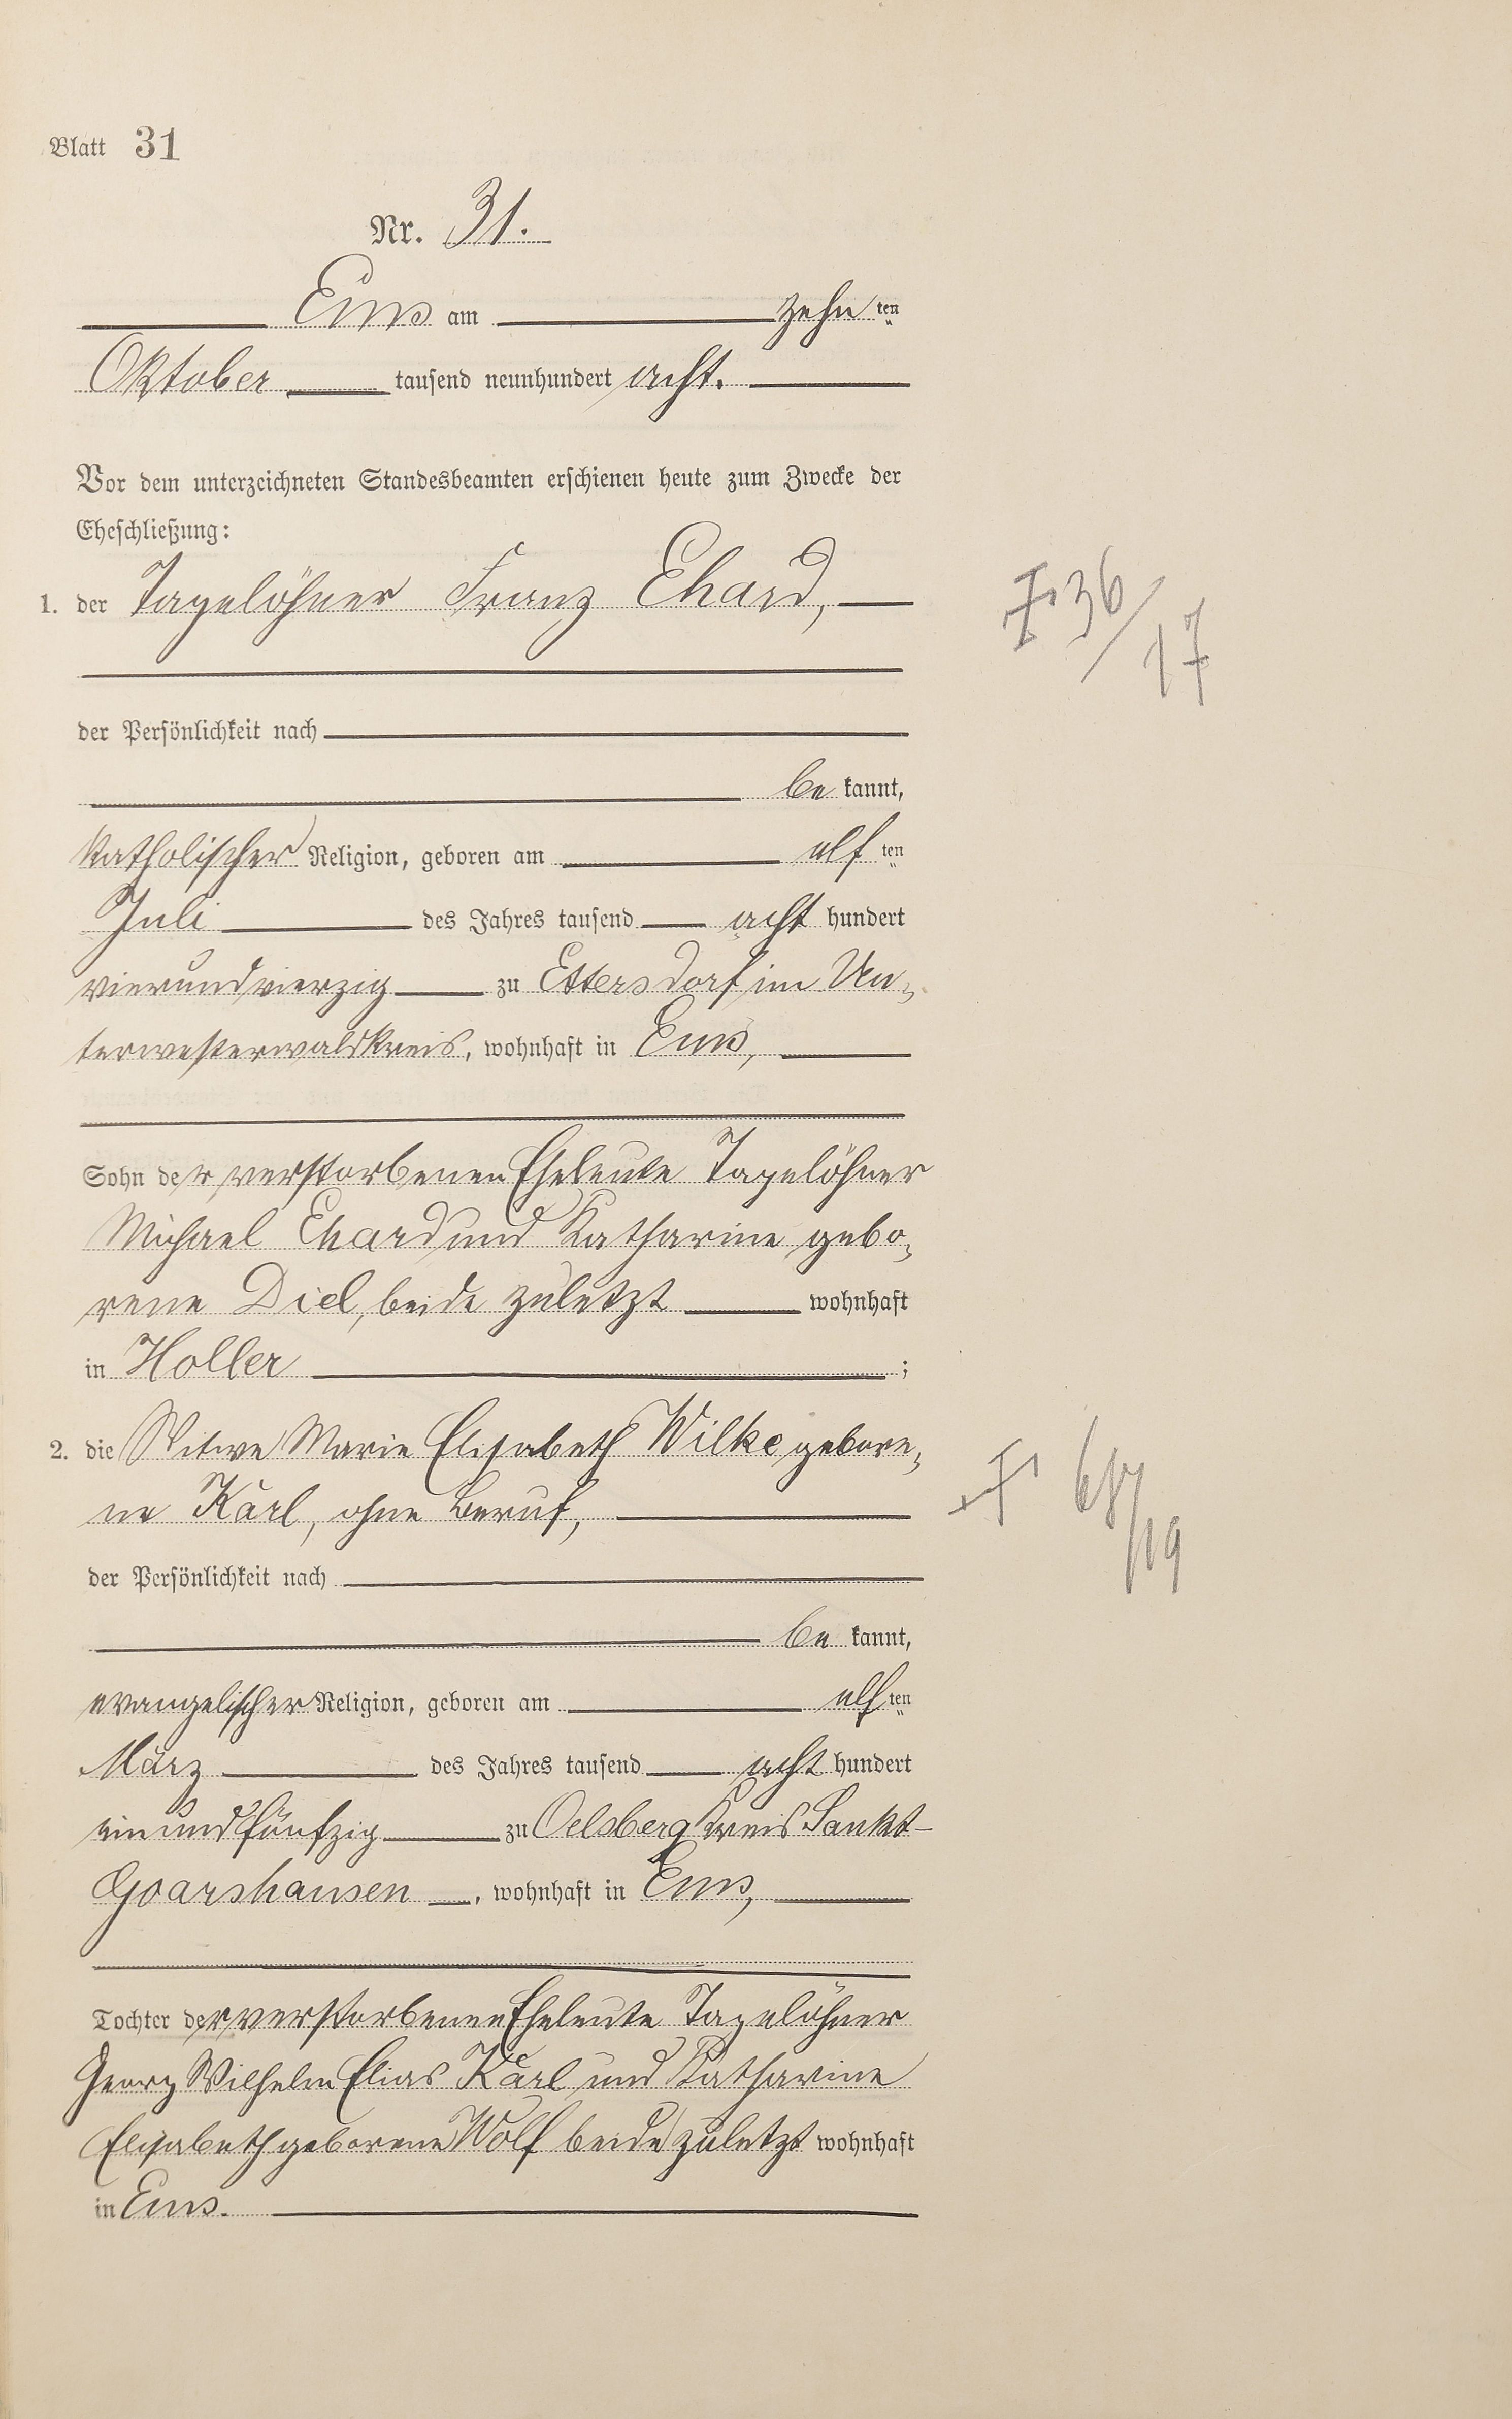 Blatt 31
Nr. 31.
Ems am zehn ten
Oktober tausend neunhundert acht.
Vor dem unterzeichneten Standesbeamten erschienen heute zum Zwecke der
Eheschließung:
1. der Tagelöhner Franz Ehard,
der Persönlichkeit nach
be kannt,
katholischer Religion, geboren am elf ten
Juli des Jahres tausend acht hundert
vierundvierzig zu Ettersdorf im Un-
terwesterwaldkreis, wohnhaft in Ems,
Sohn der verstorbenen Eheleute Tagelöhner
Michael Ehard und Katharine gebo-
rene Diel, beide zuletzt wohnhaft
in Holler ;
2. die Witwe Marie Elisabeth Wilke gebore-
ne Karl, ohne Beruf,
der Persönlichkeit nach
be kannt,
evangelischer Religion, geboren am elf ten
März des Jahres tausend acht hundert
einundfünfzig zu Oelsberg Kreis Sankt-
Goarshausen, wohnhaft in Ems,
Tochter der verstorbenen Eheleute Tagelöhner
Georg Wilhelm Elias Karl und Katharine
Elisabeth geborene Wolf beide zuletzt wohnhaft
in Ems.
36/17
/19